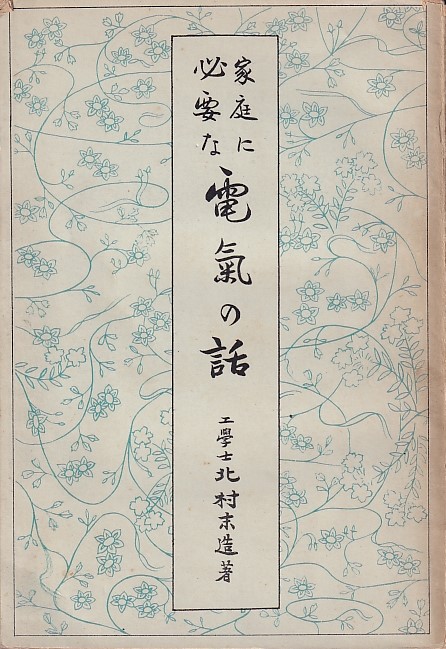 家庭に
必要な
電氣の話
工學士北村末造著